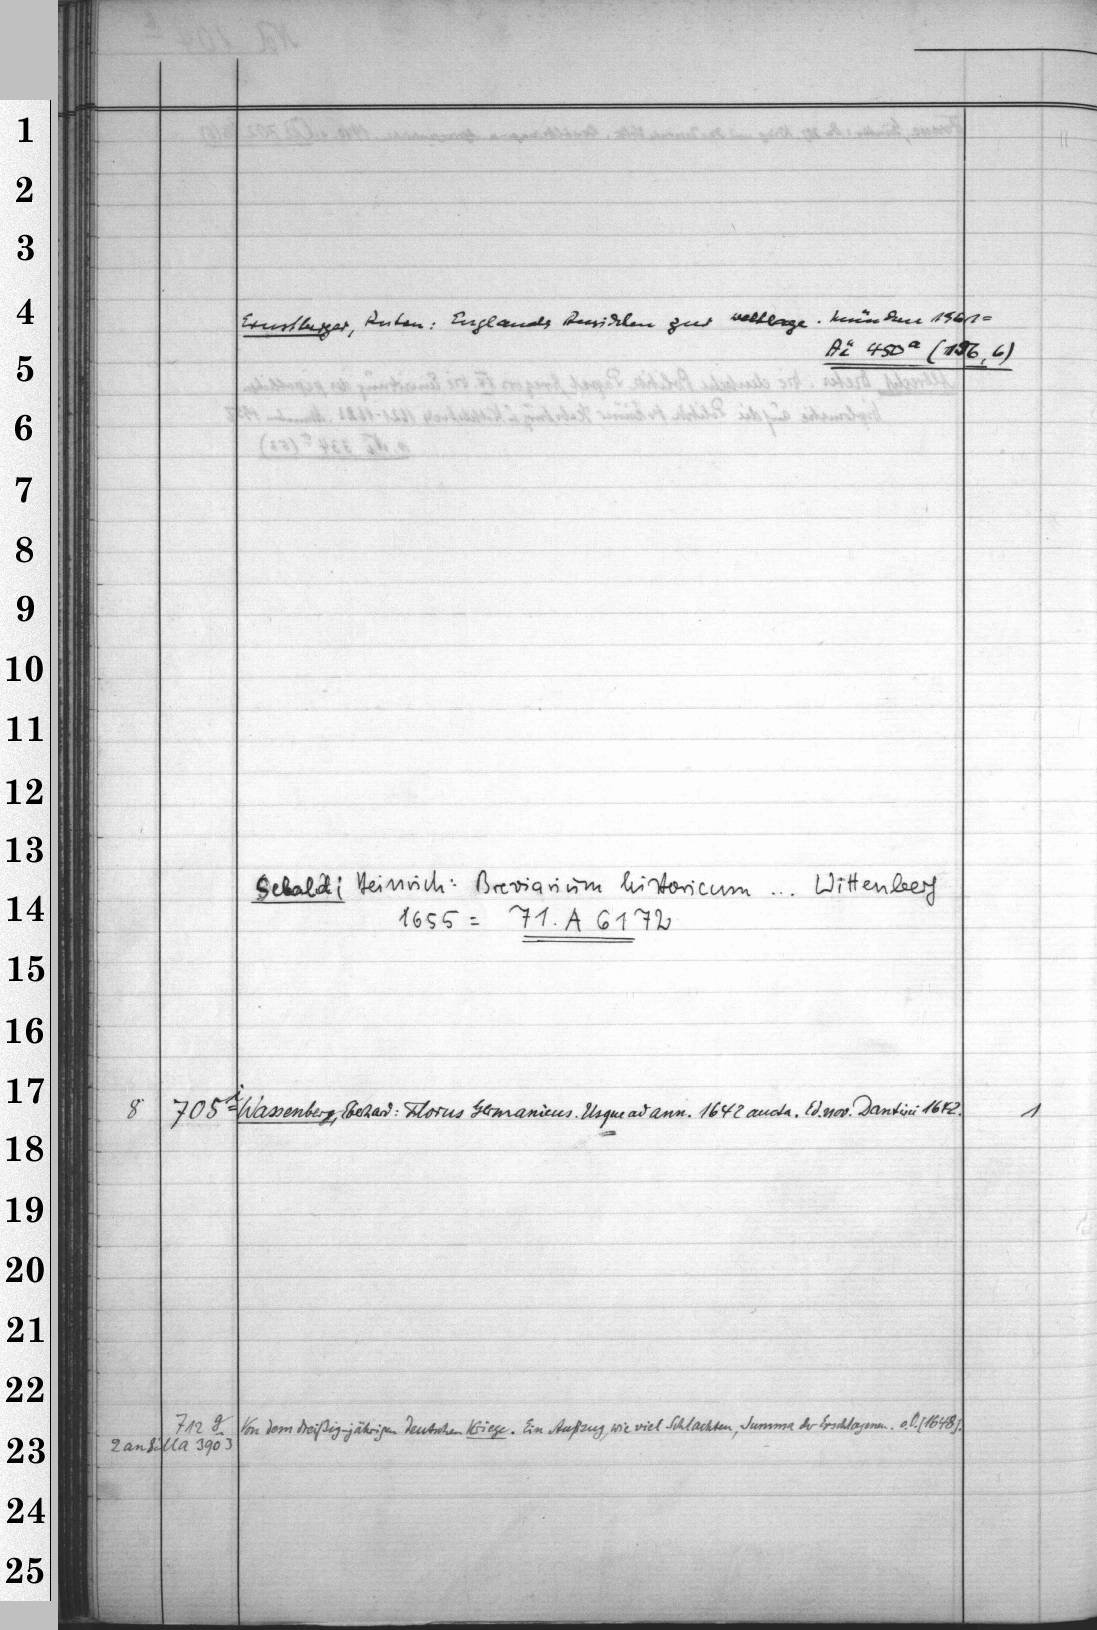 1
2
3
4
5
6
7
8
9
10
11
12
13
14
15
16
17
18
19
20
21
22
23
24
25
Ernstberger, Anton: Englands Ansichten zur Weltlage. München 1961=
Ai 450 a (196, 6)
Sebaldi Heinrich: Breviarium historicum ... Wittenberg
1655 = 71. A 6172
8 705 i Wassenberg, Eberhard: Florus Germanicus. Usque ad ann. 1642 aucta. Ed. nov. Dantisci 1642. 1
712 g Von dem dreißig-jährigen Deutschen Kriege. Ein Aufzug, wie viel Schlachten, Summa der Erschlagenen. o.O. [1648].
2 an Lila 3903